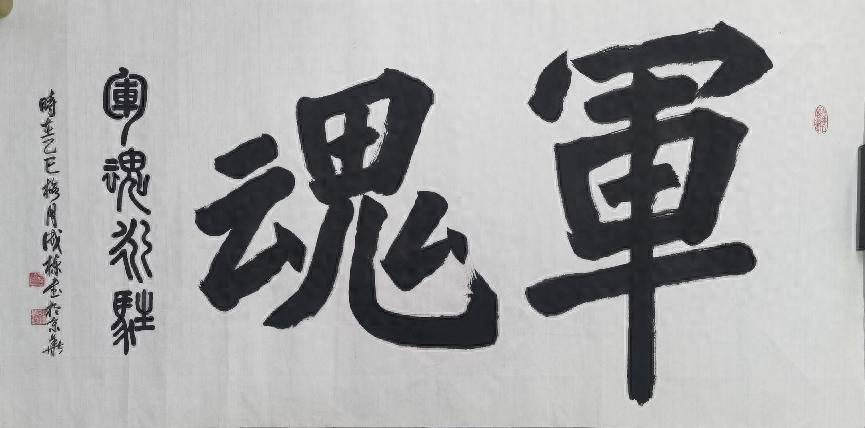 軍魂
軍魂永駐
時在乙巳梅月成栋書於京華